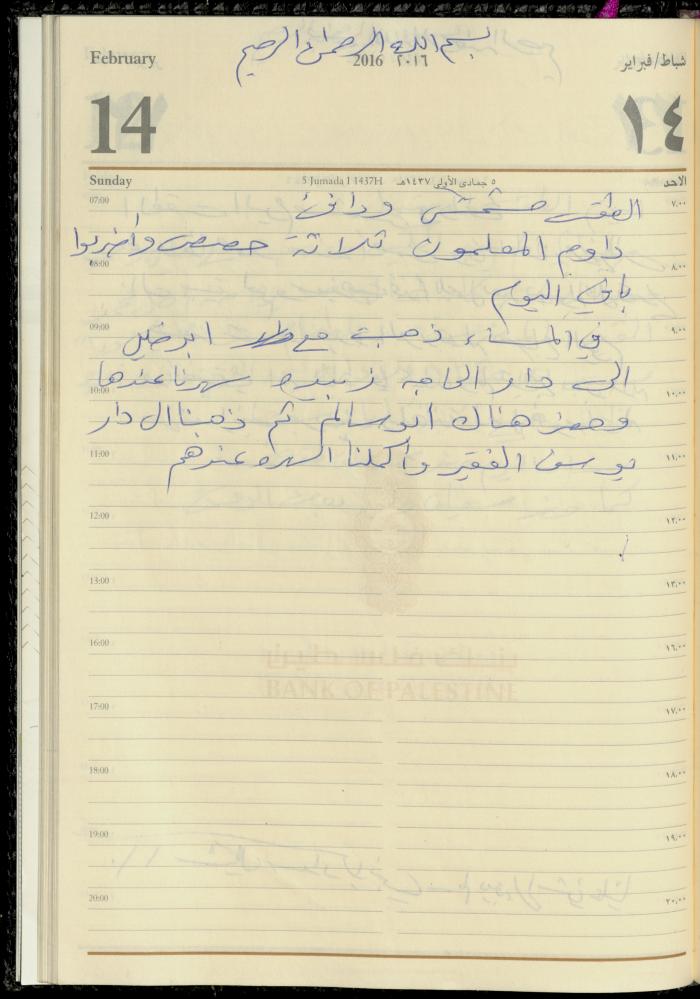 بسم الله الرحمن الرحيم
February 2016 ٢٠١٦ شباط/فبراير
14 ١٤
Sunday 5 Jumada I 1437H ٥ جمادى الأولى ١٤٣٧هـ الاحد
07:00 الطقس مشمس ودافئ ٧،٠٠
داوم المعلمون ثلاثة حصص وأضربوا
08:00 ٨،٠٠
باقي اليوم
09:00 ٩،٠٠
في المساء ذهبت مع ابو خليل
10:00 الى دار الحاجه زبيده سهرنا عندها ١٠،٠٠
وحضر هناك ابو سالم ثم ذهبنا ال دار
11:00 يوسف الفقير وأكملنا السهره عندهم ١١،٠٠
12:00 ١٢،٠٠
13:00 ١٣،٠٠
16:00 ١٦،٠٠
بنك فلسطين
BANK OF PALESTINE
17:00 ١٧،٠٠
18:00 ١٨،٠٠
19:00 ١٩،٠٠
20:00 ٢٠،٠٠